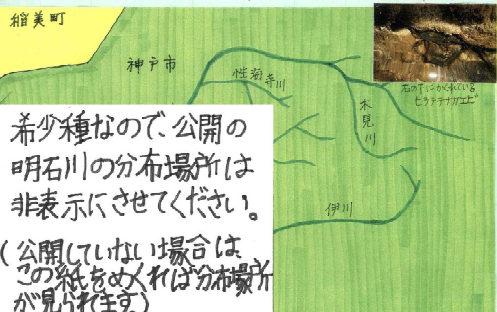 稲美町
神戸市
性海寺川
木見川
石の下にかくれている
ヒラテテナガエビ
伊川
希少種なので、公開の
明石川の分布場所は
非表示にさせてください。
(公開していない場合は、
この紙をめくれば分布場所
が見られます)